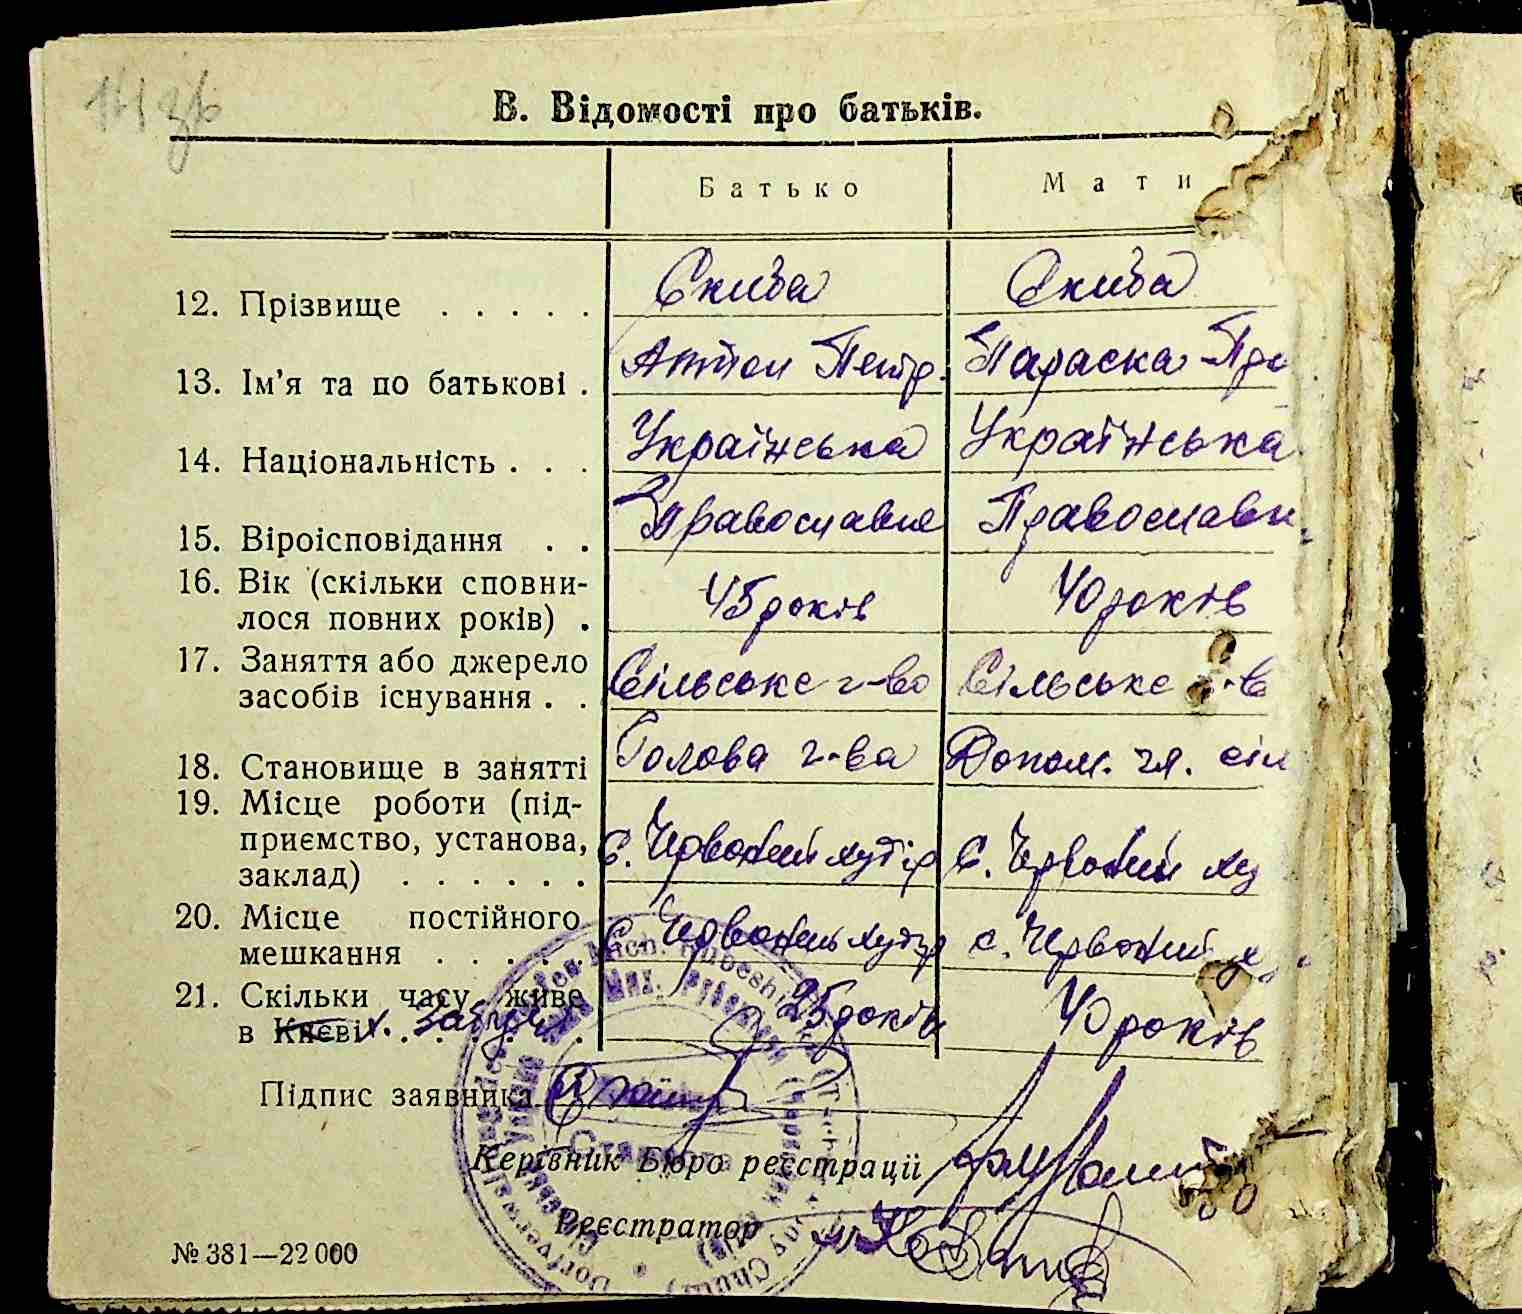 141 зв
В. Відомості про батьків.
Батько Мати
12. Прізвище . . . . . Скиба Скиба
13. Ім’я та по батькові . Антон Петр. Параска
14. Національність . . . Українська Українська
15. Віроісповідання . . Православна Православн.
16. Вік (скільки сповни-
лося повних років) . 45 років 40 років
17. Заняття або джерело
засобів існування . . Сільське г-во Сільське г-в
18. Становище в занятті Голова г-ва Допом. гл. сіл
19. Місце роботи (під-
приємство, установа,
заклад) . . . . . . с. Червоний хутір с. Червоний ху
20. Місце постійного
мешкання . . . . . с. Червоний хутір с. Червоний х
21. Скільки часу живе
в Києві х. . . . . 25 років 40 років
Підпис заявника
Керівник Бюро реєстрації
Реєстратор
№ 381—22 000